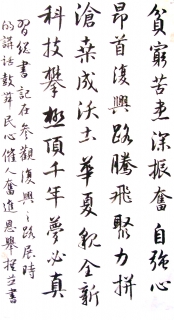 貧窮苦患深振奮自強心
昂首復興路騰飛聚力拼
滄桑成沃土華夏貌全新
科技攀極頂千年夢必真
習總書記在參觀復興之路展時
的講話鼓舞民心催人奮進恩舉撰並書